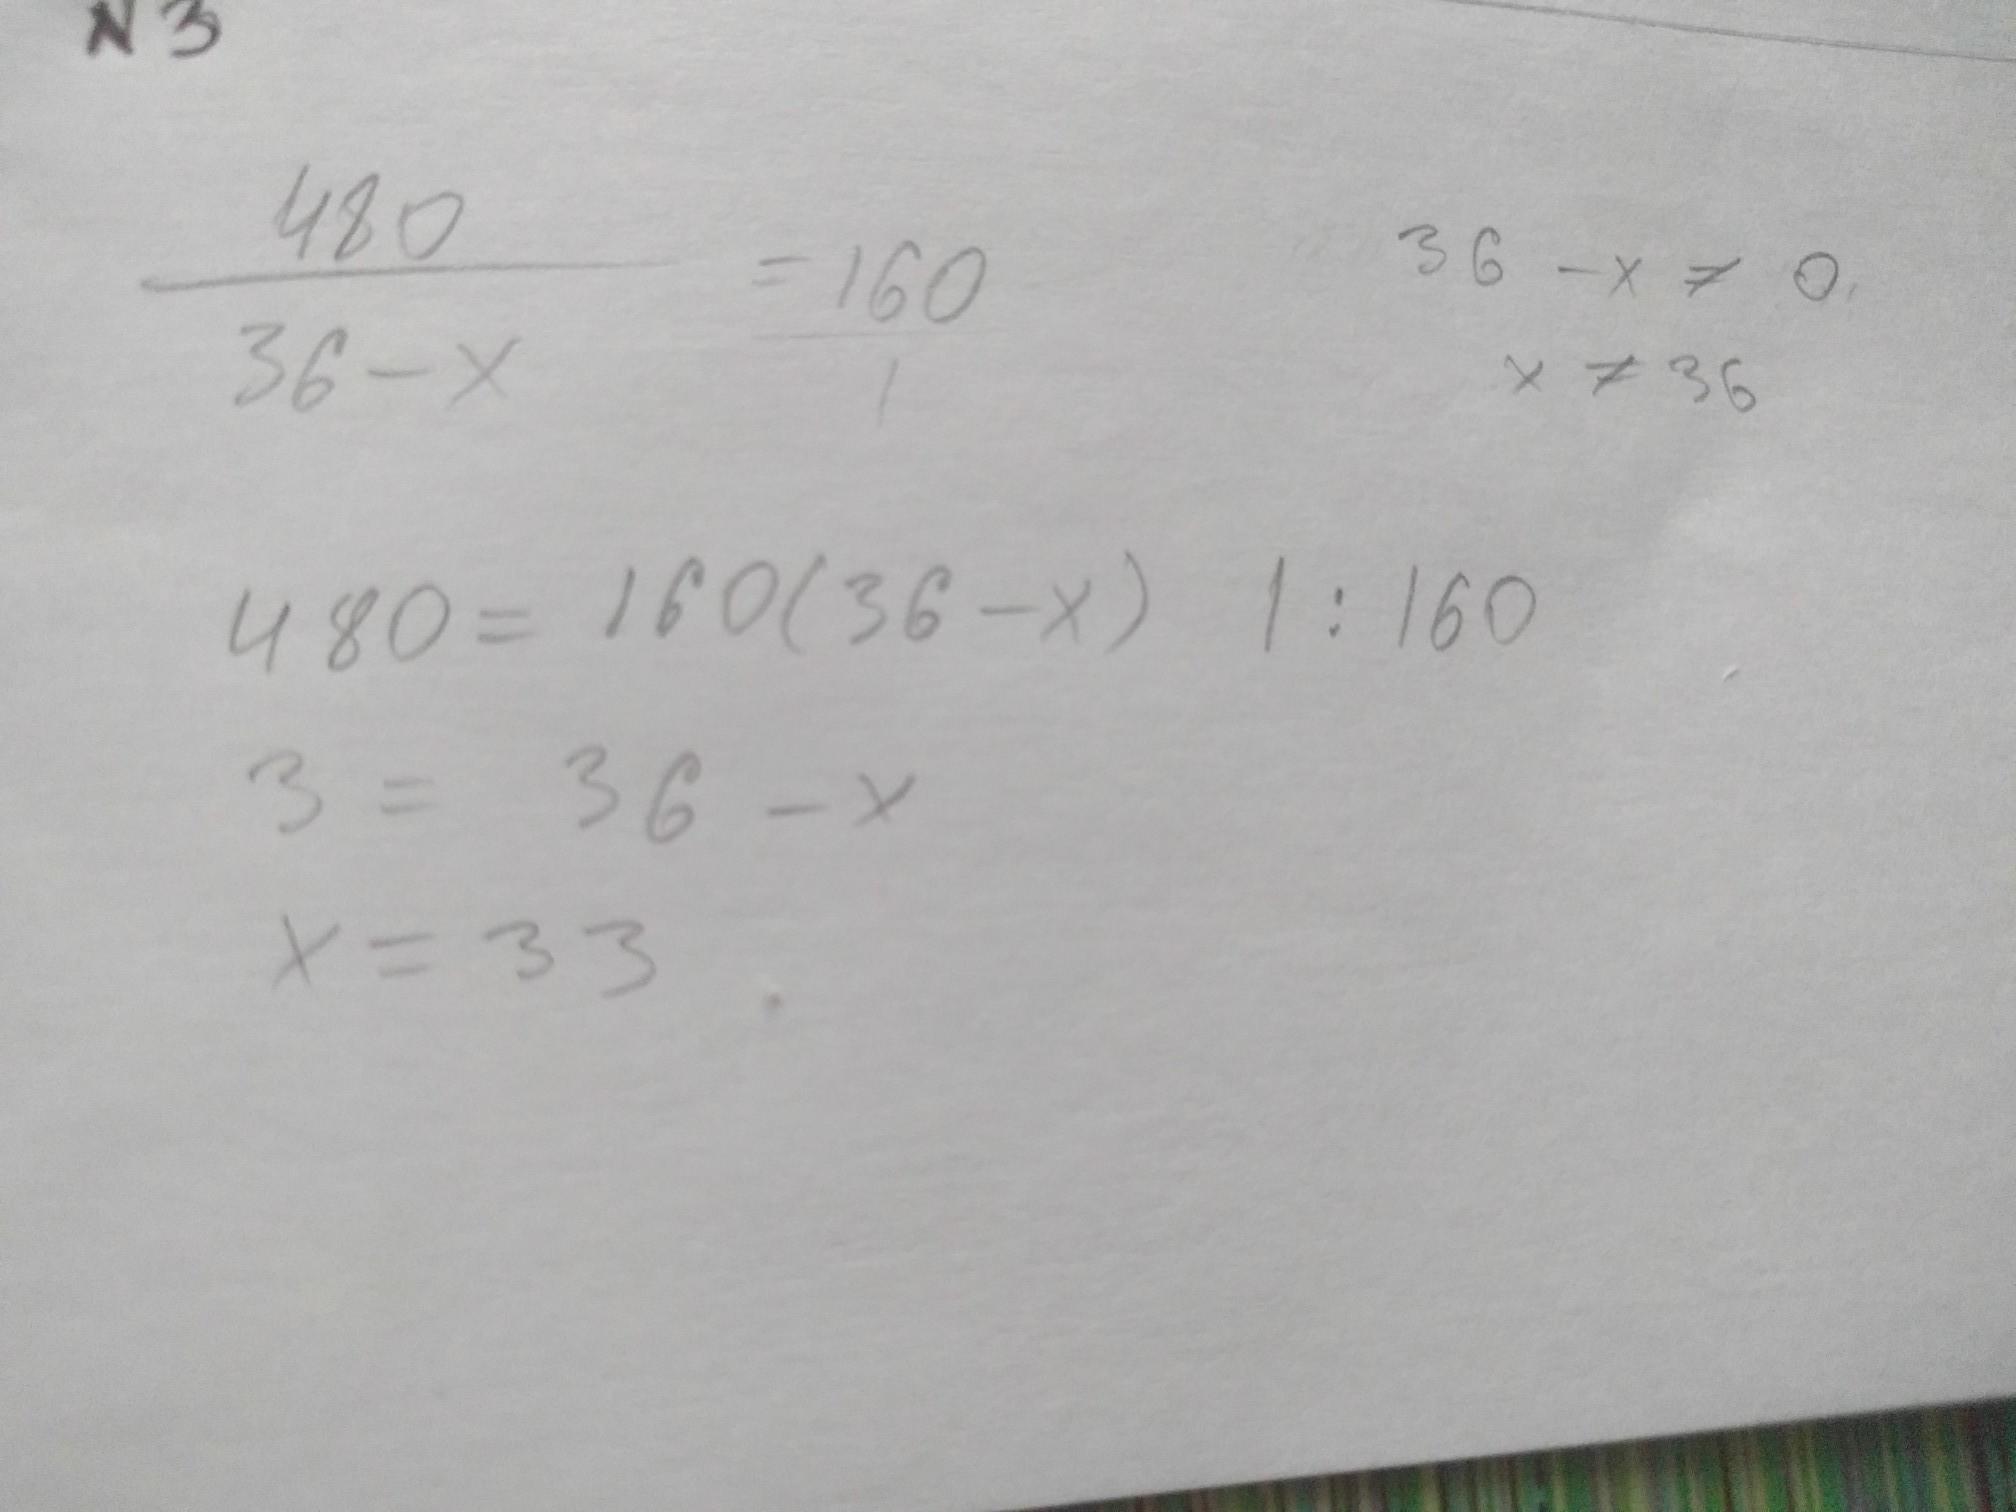 N 3
480
36 - x ≠ 0.
= 160
36 - x
1
x ≠ 36
480 = 160(36 - x) | : 160
3 = 36 - x
x = 33